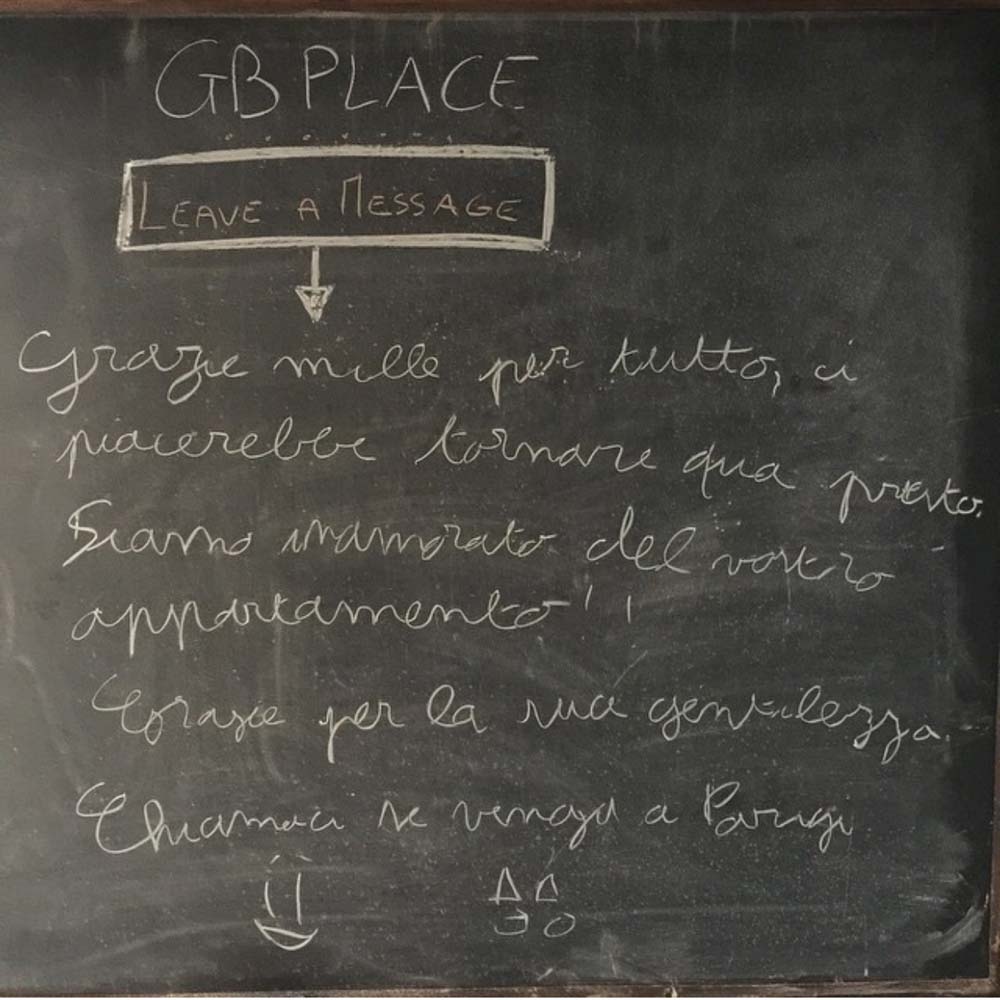 GB PLACE
LEAVE A MESSAGE
Grazie mille per tutto, ci
piacerebbe tornare qua presto.
Siamo inamorato del vostro
appartamento !!
Grazie per la sua gentilezza.
Chiamaci se venga a Parigi